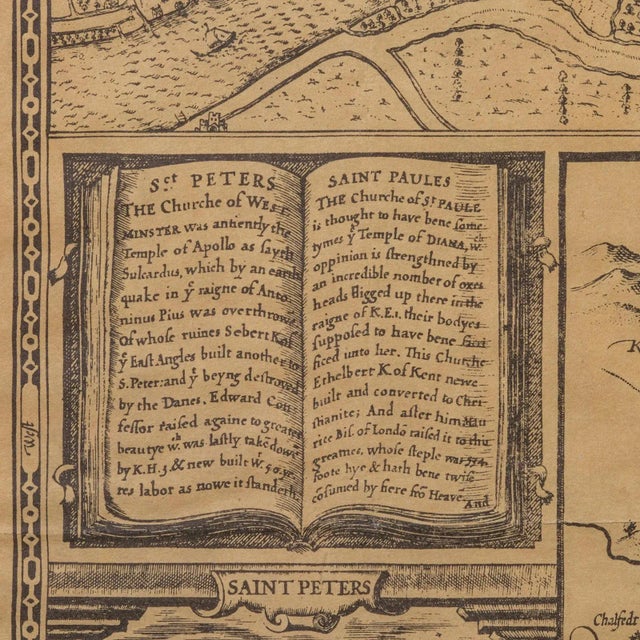 Sct PETERS
THE Churche of WEST
MINSTER was antiently the
Temple of Apollo as sayth
Sulcardus, which by an earth
quake in yͤ raigne of Anto
ninus Pius was overthrowe
Of whose ruines Sebert K. of
yͤ East Angles built another to
S. Peter: and yͤ beyng destroyed
by the Danes, Edward Con
fessor raised againe to greater
beautye wͨͪ was lastly take dowe
by K.H.3 & new built wͭ 50 ye
res labor as nowe it standeth.
SAINT PAULES
THE Churche of Sͭ PAULE
is thought to have bene some
tymes yͤ Temple of DIANA, wͨͪ
oppinion is strengthned by
an incredible nomber of oxes
heads digged up there in the
raigne of K.E.1. their bodyes
supposed to have bene sacri
ficed unto her. This Churche
Ethelbert K. of Kent newe
built and converted to Chri
stianite; And after him Mau
rice Bis. of Londō raised it to this
greatnes, whose steple was 534
foote hye & hath bene twise
cōsumed by fiere frō Heave. And
SAINT PETERS
K
Chalfedt